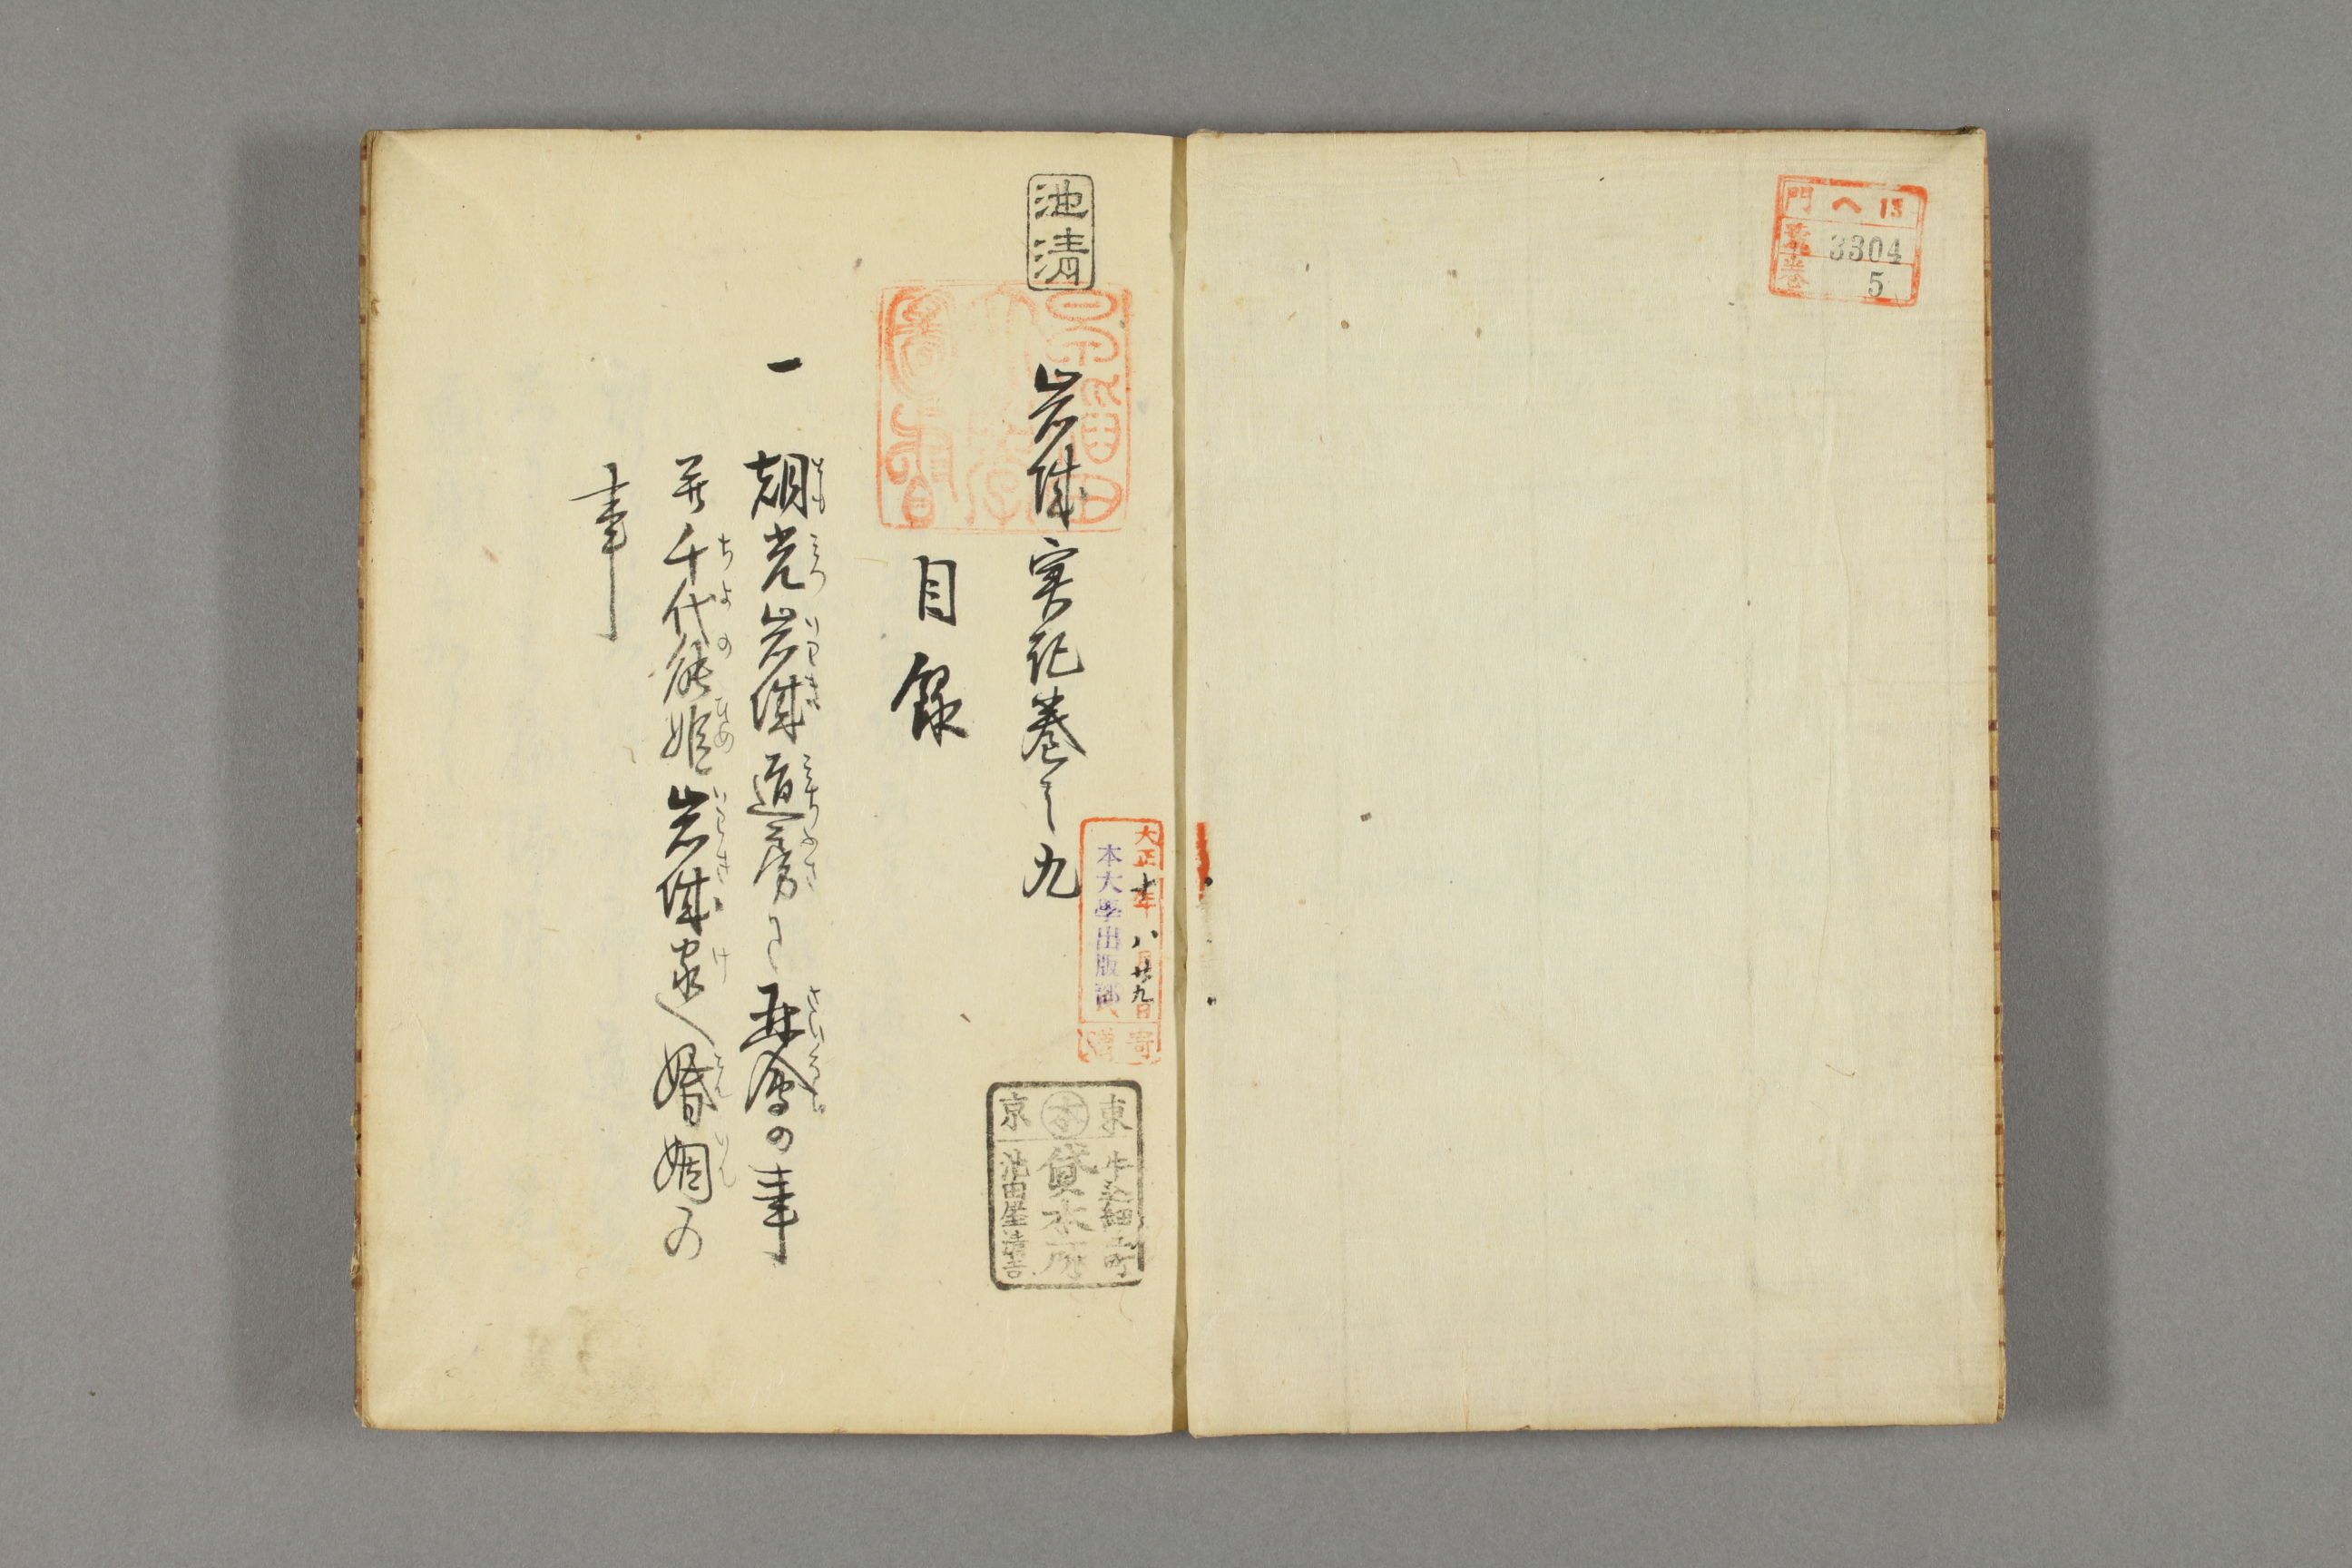 門 ヘ 13
號 3304
卷 5
池清
岩城実記巻之九
目録
一 頼光岩城道房に再会の事
并千代能姫岩城家へ婚姻の
事
大正十年八月廿九日
本大學出版部
寄贈
東京
本
牛込細工町
貸本所
池田屋清吉